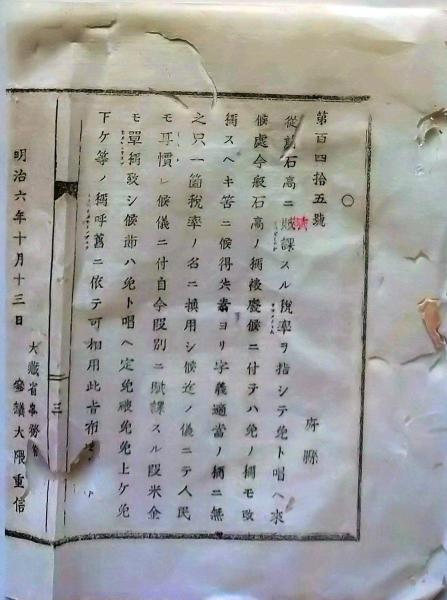 第百四拾五號
○
府縣
從前石高ニ賦課スル稅率ヲ指シテ免ト唱ヘ來
候處今般石高ノ稱被廢候ニ付テハ免ノ稱モ改
稱スヘキ筈ニ候得共素ヨリ字義適當ノ稱ニ無
之只一箇稅率ノ名ニ換用シ候迄ノ儀ニテ人民
モ耳慣レ候儀ニ付自今段別ニ賦課スル段米金
モ單稱致シ候節ハ免ト唱ヘ定免破免免上ケ免
下ケ等ノ稱呼舊ニ依テ可相用此旨布
明治六年十月十三日
大藏省事務
參議大隈重信
三